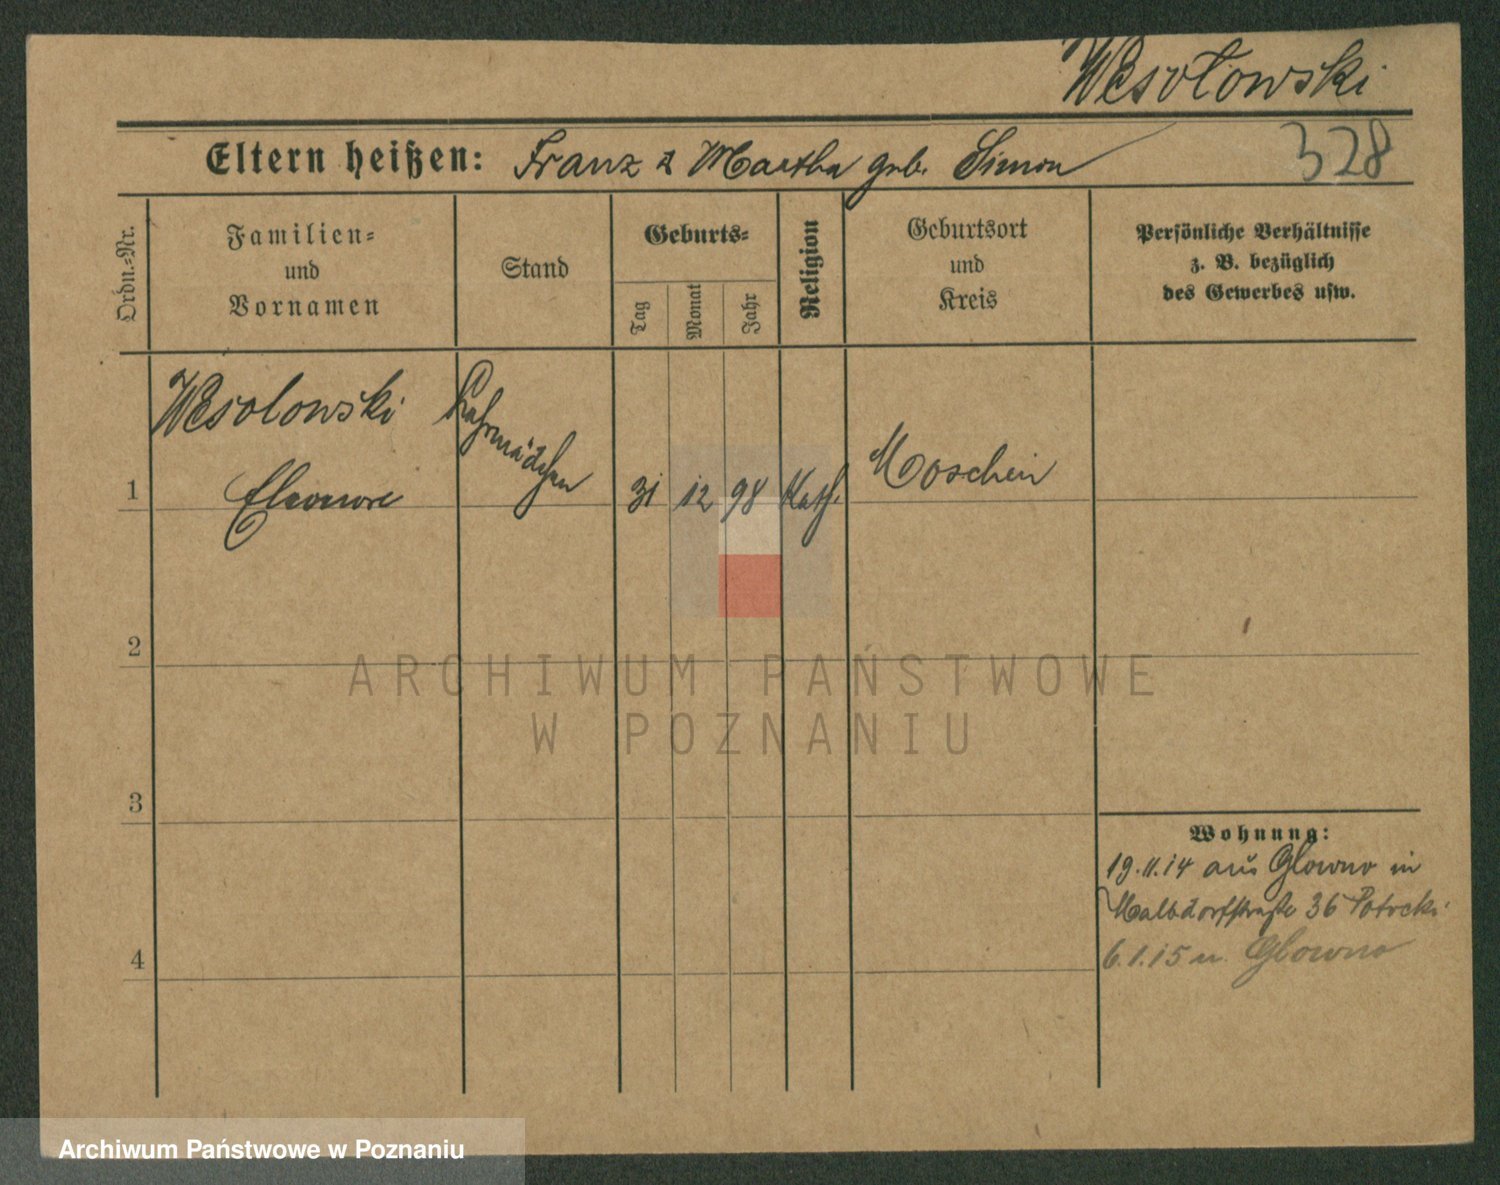 Wesołowski
Eltern heißen: Franz & Martha geb. Simon
328
Ordn.-Nr.
Familien-
und
Vornamen
Stand
Geburts-
Tag
Monat
Jahr
Religion
Geburtsort
und
Kreis
Persönliche Verhältnisse
z. B. bezüglich
des Gewerbes usw.
1
Wesolowski
Eleonore
31
12
98
Kath.
Moschin
2
3
4
Wohnung:
19.11.14 aus Glowno in
36 Potocki
6.1.15 n. Glowno
ARCHIWUM PAŃSTWOWE
W POZNANIU
Archiwum Państwowe w Poznaniu